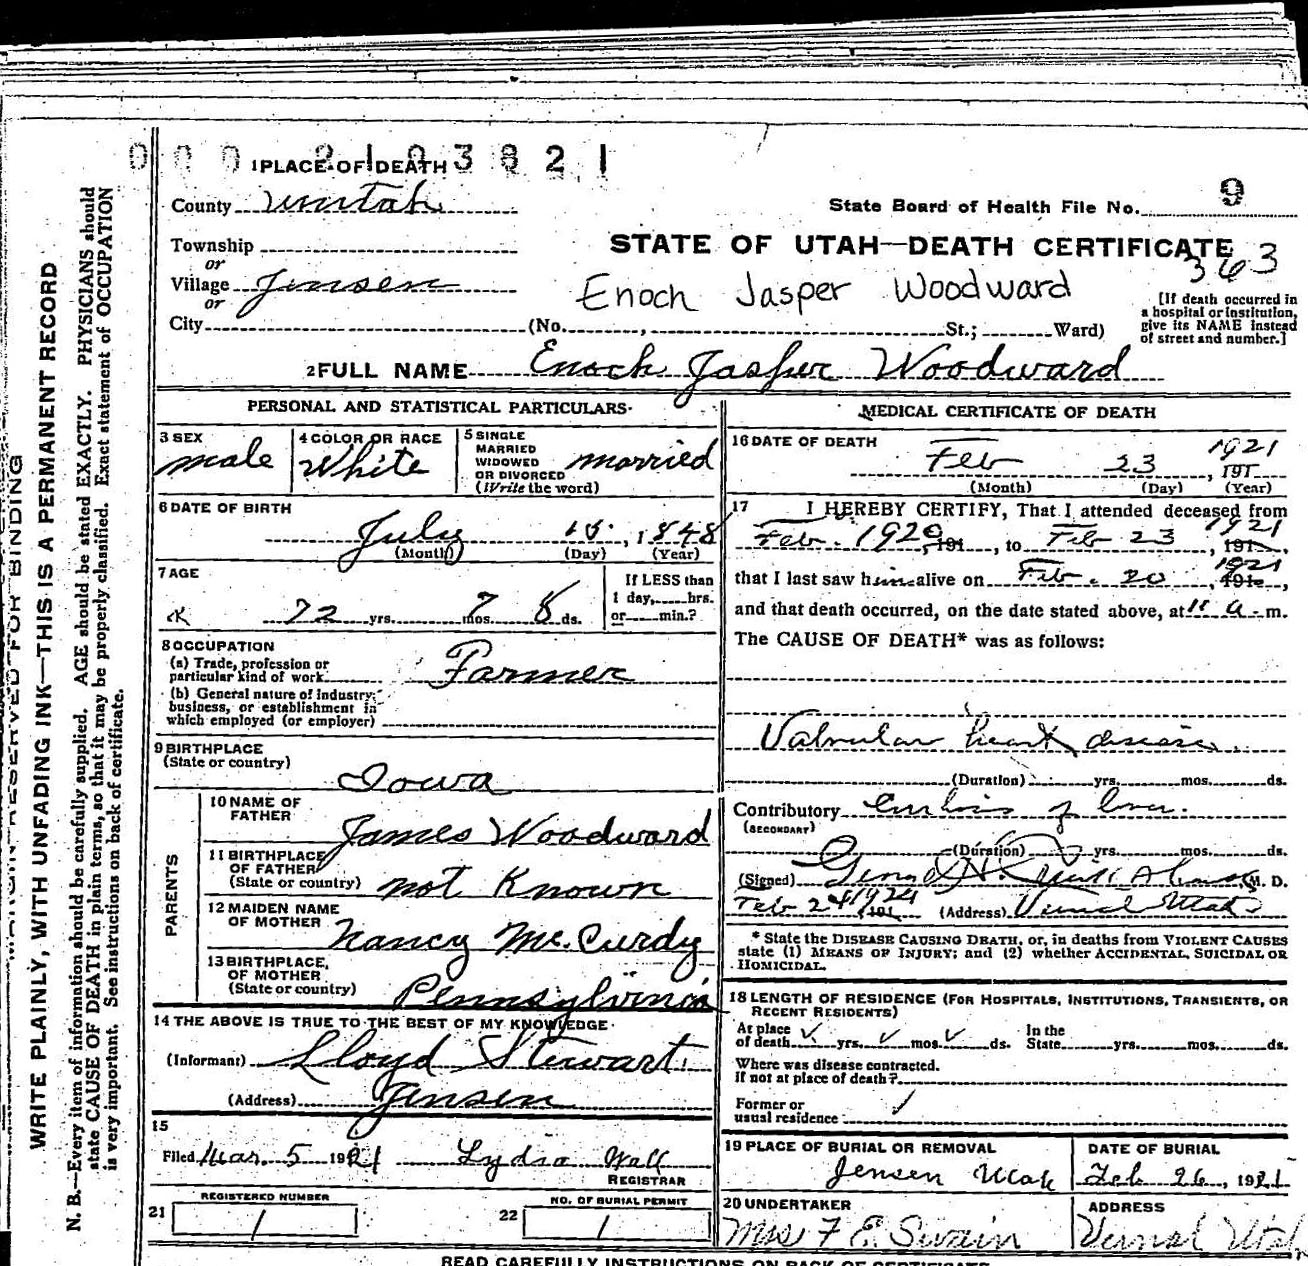 0002103821
1 PLACE OF DEATH
County Uintah
State Board of Health File No. 9
STATE OF UTAH—DEATH CERTIFICATE
363
Township
or
Village Jensen
or
Enoch Jasper Woodward
[If death occurred in
a hospital or institution,
give its NAME instead
of street and number.]
City (No. , St.; Ward)
2 FULL NAME Enoch Jasper Woodward
PERSONAL AND STATISTICAL PARTICULARS
3 SEX
male
4 COLOR OR RACE
White
5 SINGLE
MARRIED
WIDOWED
OR DIVORCED
(Write the word)
married
6 DATE OF BIRTH
July 15, 1848
(Month) (Day) (Year)
7 AGE
72 yrs. 7 mos. 8 ds.
If LESS than
1 day, hrs.
or min.?
8 OCCUPATION
(a) Trade, profession or
particular kind of work Farmer
(b) General nature of industry,
business, or establishment in
which employed (or employer)
9 BIRTHPLACE
(State or country)
Iowa
PARENTS
10 NAME OF
FATHER
James Woodward
11 BIRTHPLACE
OF FATHER
(State or country) not Known
12 MAIDEN NAME
OF MOTHER
Nancy McCurdy
13 BIRTHPLACE,
OF MOTHER
(State or country) Pennsylvinia
14 THE ABOVE IS TRUE TO THE BEST OF MY KNOWLEDGE
(Informant) Lloyd Stewart
(Address) Jensen
15
Filed Mar. 5 1921 Lydia Wall
REGISTRAR
21 REGISTERED NUMBER
1
22 NO. OF BURIAL PERMIT
1
MEDICAL CERTIFICATE OF DEATH
16 DATE OF DEATH
Feb 23, 1921
(Month) (Day) (Year)
17 I HEREBY CERTIFY, That I attended deceased from
Feb. 1920, to Feb 23, 1921
that I last saw him alive on Feb. 20, 1921,
and that death occurred, on the date stated above, at 11 a. m.
The CAUSE OF DEATH* was as follows:
Valvular heart disease.
(Duration) yrs. mos. ds.
Contributory of liver.
(SECONDARY)
(Duration) yrs. mos. ds.
(Signed) M. D.
Feb 24 (Address) Vernal Utah
* State the DISEASE CAUSING DEATH, or, in deaths from VIOLENT CAUSES
state (1) MEANS OF INJURY; and (2) whether ACCIDENTAL, SUICIDAL OR
HOMICIDAL.
18 LENGTH OF RESIDENCE (FOR HOSPITALS, INSTITUTIONS, TRANSIENTS, OR
RECENT RESIDENTS)
At place
of death yrs. mos. ds.
In the
State yrs. mos. ds.
Where was disease contracted.
if not at place of death?
Former or
usual residence
19 PLACE OF BURIAL OR REMOVAL
Jensen Utah
DATE OF BURIAL
Feb 26, 1921
20 UNDERTAKER
Mrs F E Swain
ADDRESS
Vernal Utah
READ CAREFULLY INSTRUCTIONS ON BACK OF CERTIFICATE
MARGIN RESERVED FOR BINDING
WRITE PLAINLY, WITH UNFADING INK—THIS IS A PERMANENT RECORD
N. B.—Every item of information should be carefully supplied. AGE should be stated EXACTLY. PHYSICIANS should
state CAUSE OF DEATH in plain terms, so that it may be properly classified. Exact statement of OCCUPATION
is very important. See instructions on back of certificate.